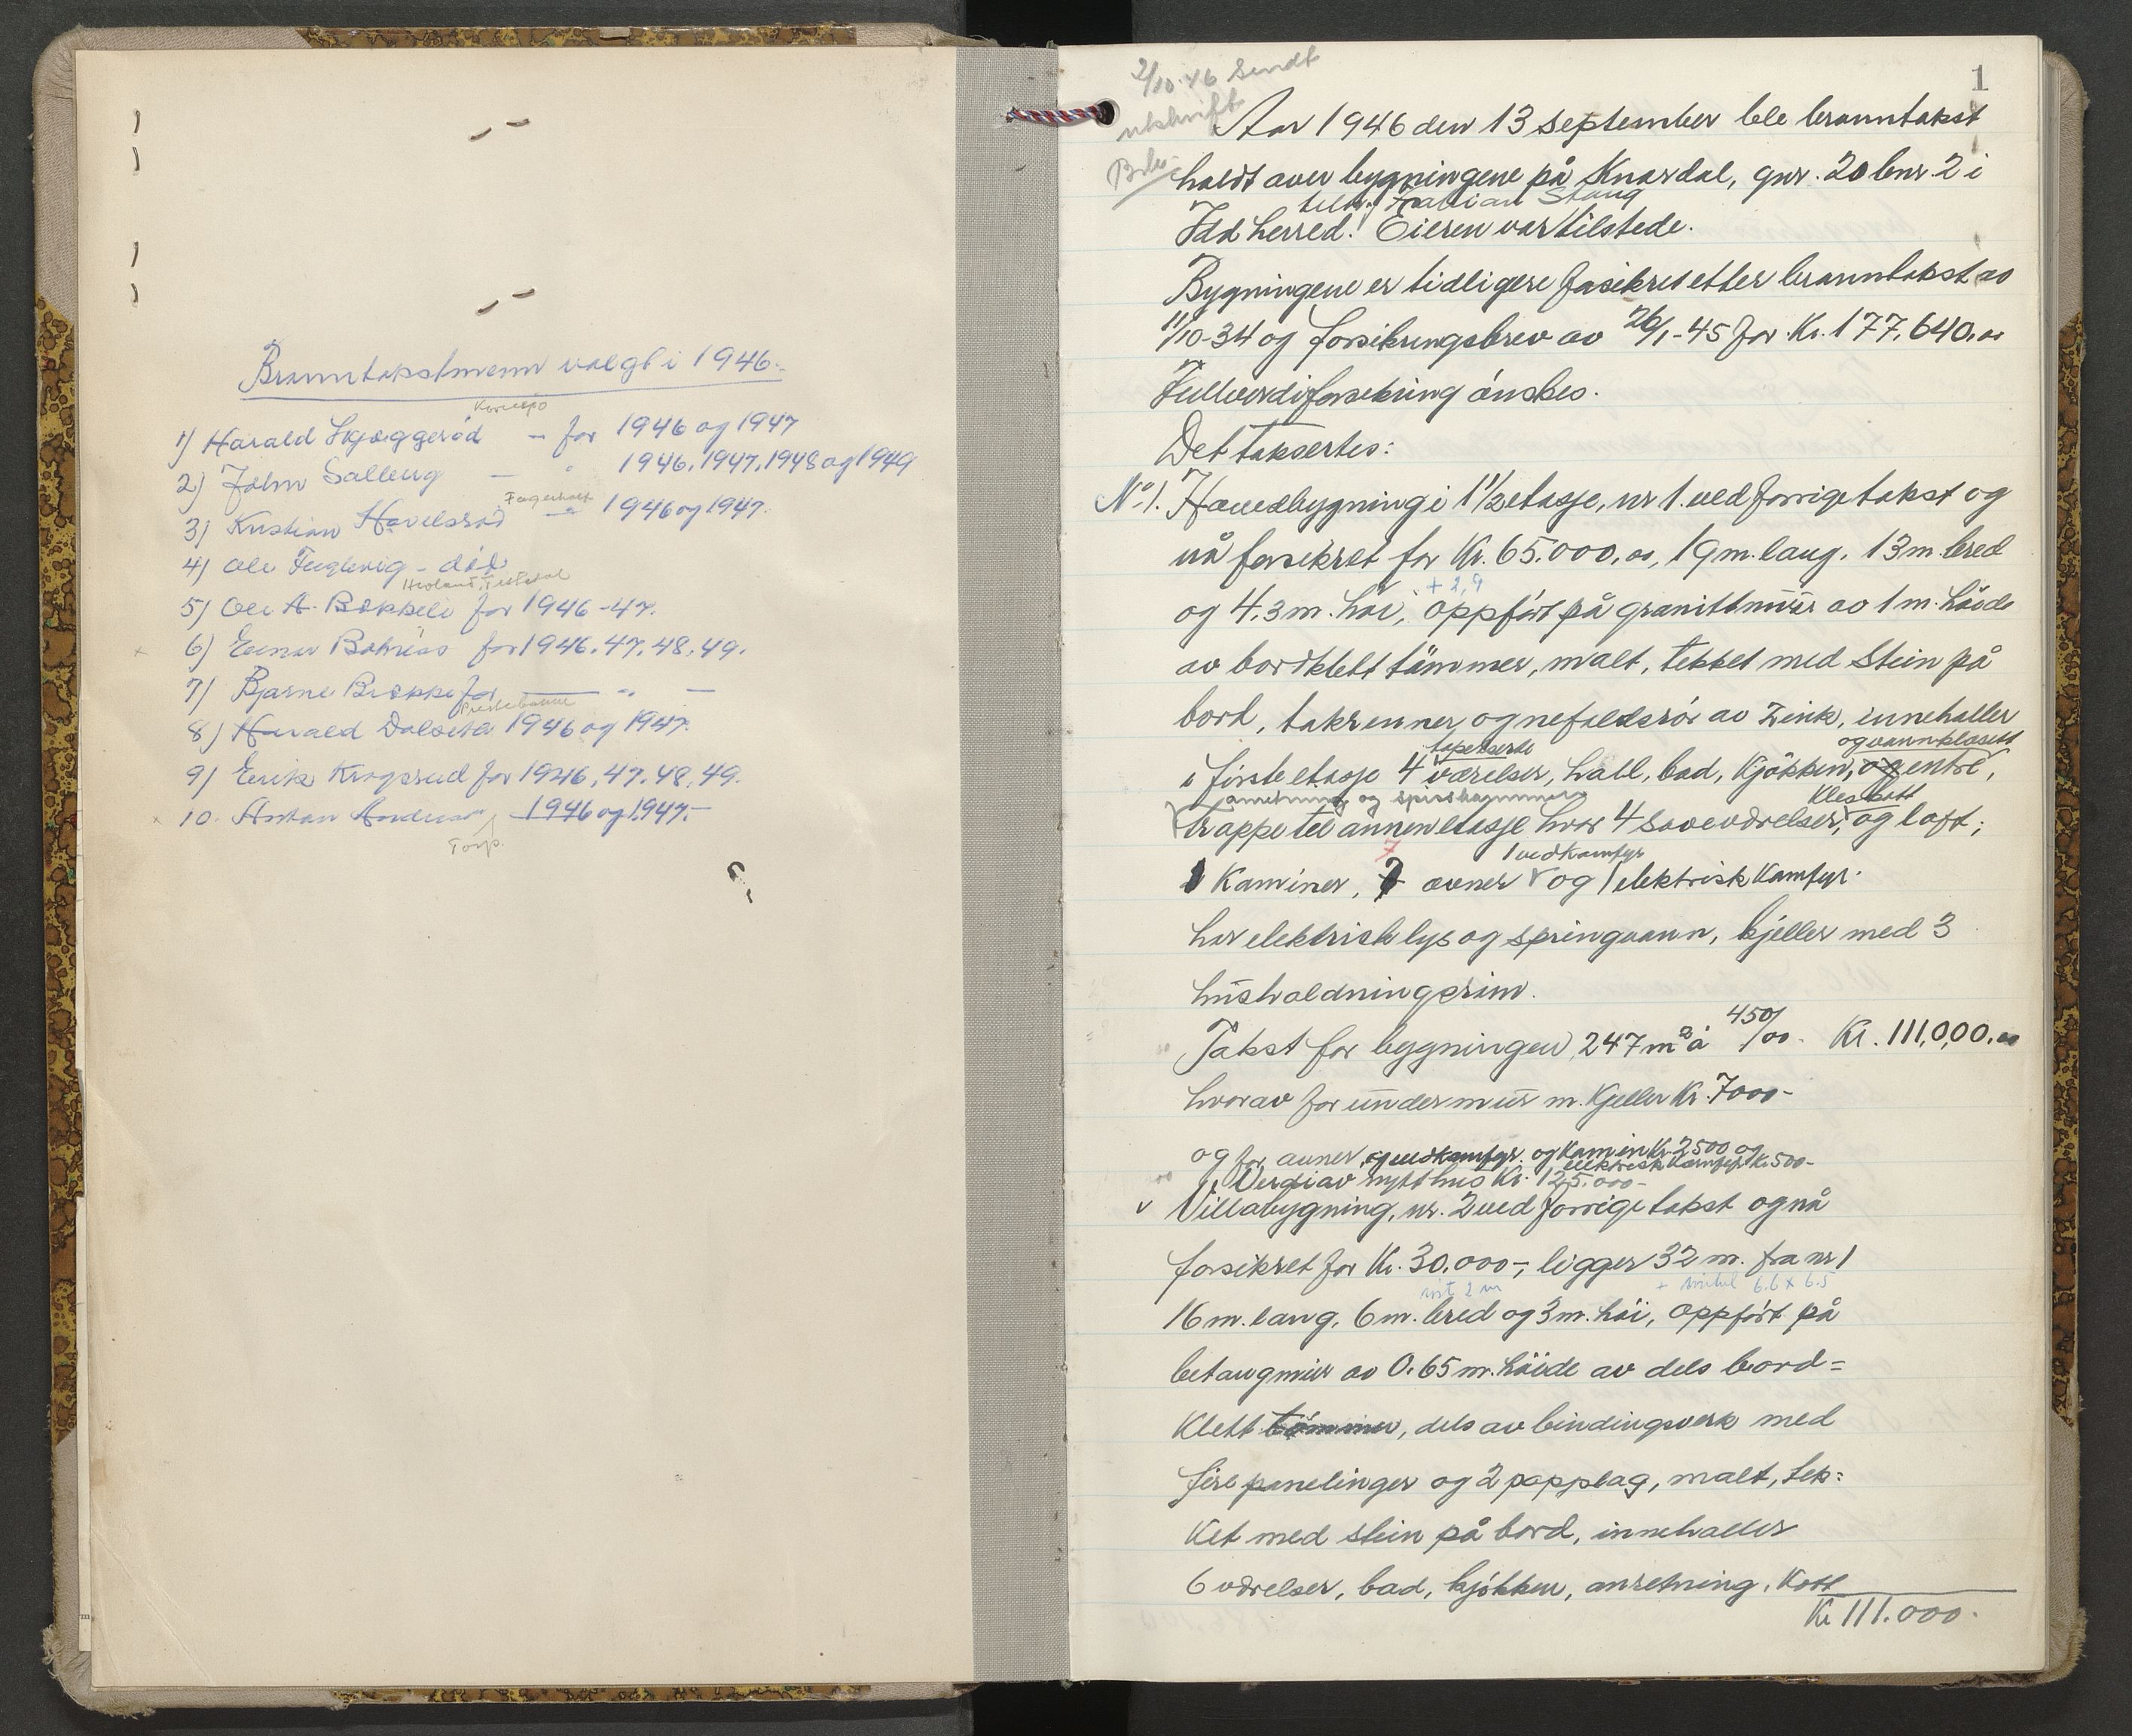 Branntakstmenn valgt i 1946.
1) Harald Skjæggerød - for 1946 og 1947
2) John Salleug — " 1946, 1947, 1948 og 1949
Fagerholt
3) Kristian Havelsrød —"— 1946 og 1947.
4) Ole Fuglevig - død
5) Ole A. Bakkeli for 1946-47.
6) Einar Bøhnäs for 1946, 47, 48, 49.
7) Bjarne Brække for — " —
8) Harald Dalseta 1946 og 1947.
9) Erik Krogsrud for 1946, 47, 48, 49.
10. Anton Anderson 1946 og 1947.—
Torp.
1
2/10.46 Sendt
utskrift
Aar 1946 den 13 september ble branntakst
holdt over bygningene på Knardal, gnr. 20 bnr. 2 i
tilh. Fabian Stang
Idd herred. Eieren var tilstede.
Bygningene er tidligere forsikret etter branntakst av
11/10-34 og forsikringsbrev av 26/1-45 for Kr. 177.640,00
Fullverdiforsikring ønskes.
Det taksertes:
No 1. Hovedbygning i 1 1/2 etasje, nr 1. ved forrige takst og
nå forsikret for Kr. 65.000,00, 19 m. lang, 13 m. bred
+ 2,9
og 4,3 m. høi, oppført på granittmür av 1 m. høide
av bordklett tømmer, malt, tekket med stein på
bord, takrenner og nefaldsrör av Zink, inneholler
tapeserte
og vannklosett
i förste etasje 4 værelser, hall, bad, kjøkken, og entre,
anretning og spisskammer
Klesbott
trappe til annen etasje hvor 4 soveværelser, og loft;
7
1 vedkomfyr
1 Kaminer, ovner og 1 elektrisk Komfyr.
har elektrisk lys og springvann, kjeller med 3
hüsholdningsrum.
Takst for bygningen 247 m2 à 450/00. Kr. 111,000.00
hvorav for ündermür m. Kjeller Kr. 7000-
og for ovner, og vedkomfyr. og Kamin Kr. 2500 og
elektrisk Komfyr Kr 500-
Verdi av nytt hus Kr. 125.000-
v Villabygning, nr. 2 ved forrige takst og nå
forsikret for Kr. 30.000-, ligger 32 m. fra nr 1
+ vinkel 6.6 x 6.5
16 m. lang, 6 m. bred og 3 m. høi, oppført på
betongmür av 0.65 m. høide av dels bord=
Klett tömmer, dels av bindingsverk med
fire panelinger og 2 papplag, malt, tek=
ket med stein på bord, inneholler
6 værelser, bad, kjøkken, anretning, Kott
Kr 111.000.